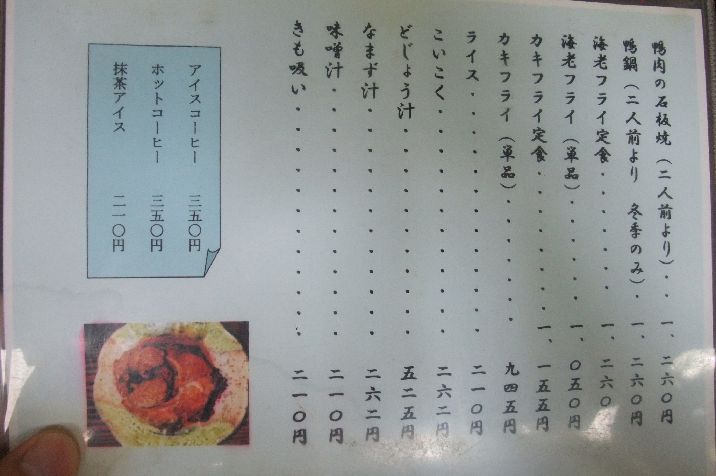 鴨肉の石板焼(二人前より)・・一、二六〇円
鴨鍋(二人前より 冬季のみ)・一、二六〇円
海老フライ定食・・・・・・・・一、二六〇円
海老フライ(単品)・・・・・・・一、〇五〇円
カキフライ定食・・・・・・・・一、一五五円
カキフライ(単品)・・・・・・・九四五円
ライス・・・・・・・・・・・・二一〇円
こいこく・・・・・・・・・・・二六二円
どじょう汁・・・・・・・・・・五二五円
なまず汁・・・・・・・・・・・二六二円
味噌汁・・・・・・・・・・・・二一〇円
きも吸い・・・・・・・・・・・二一〇円
アイスコーヒー 三五〇円
ホットコーヒー 三五〇円
抹茶アイス 二一〇円